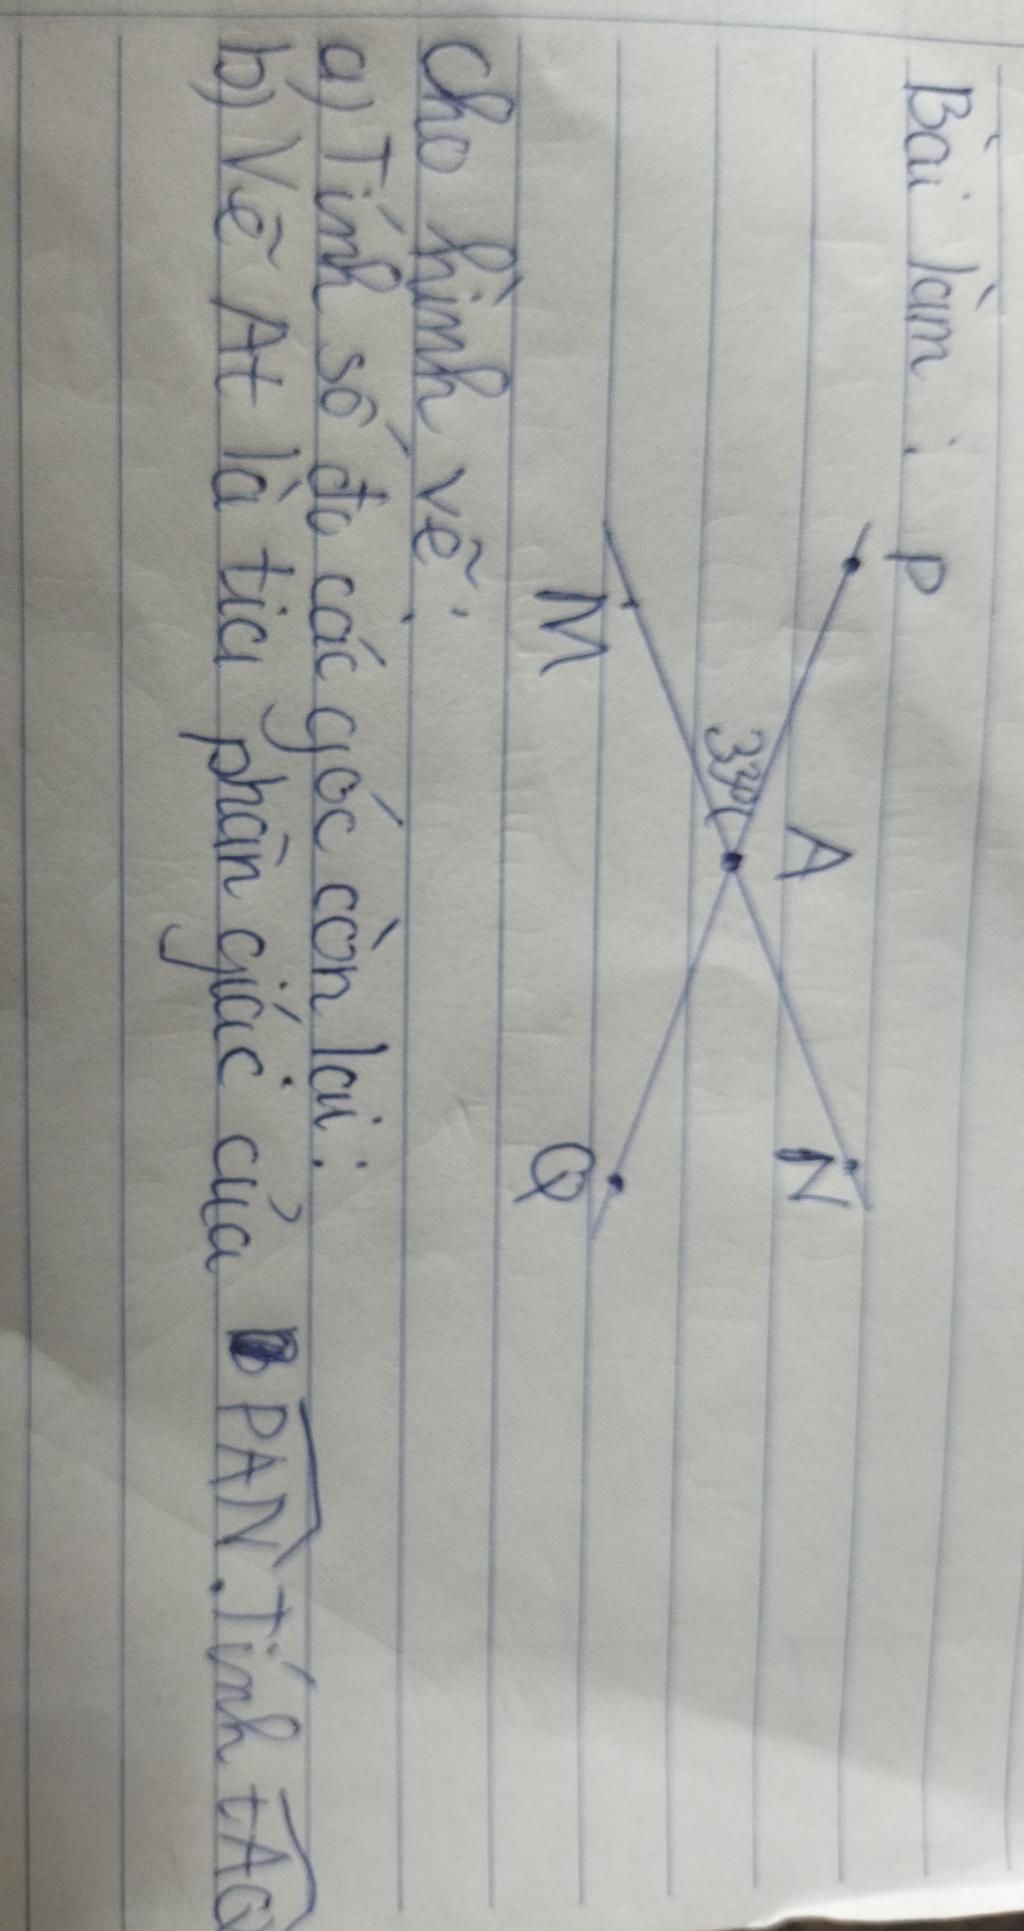 Bài làm:
P
A
N
33°
M
Q
Cho hình vẽ:
a) Tính số đo các góc còn lại:
b) Vẽ At là tia phân giác của PAN. Tính tAQ